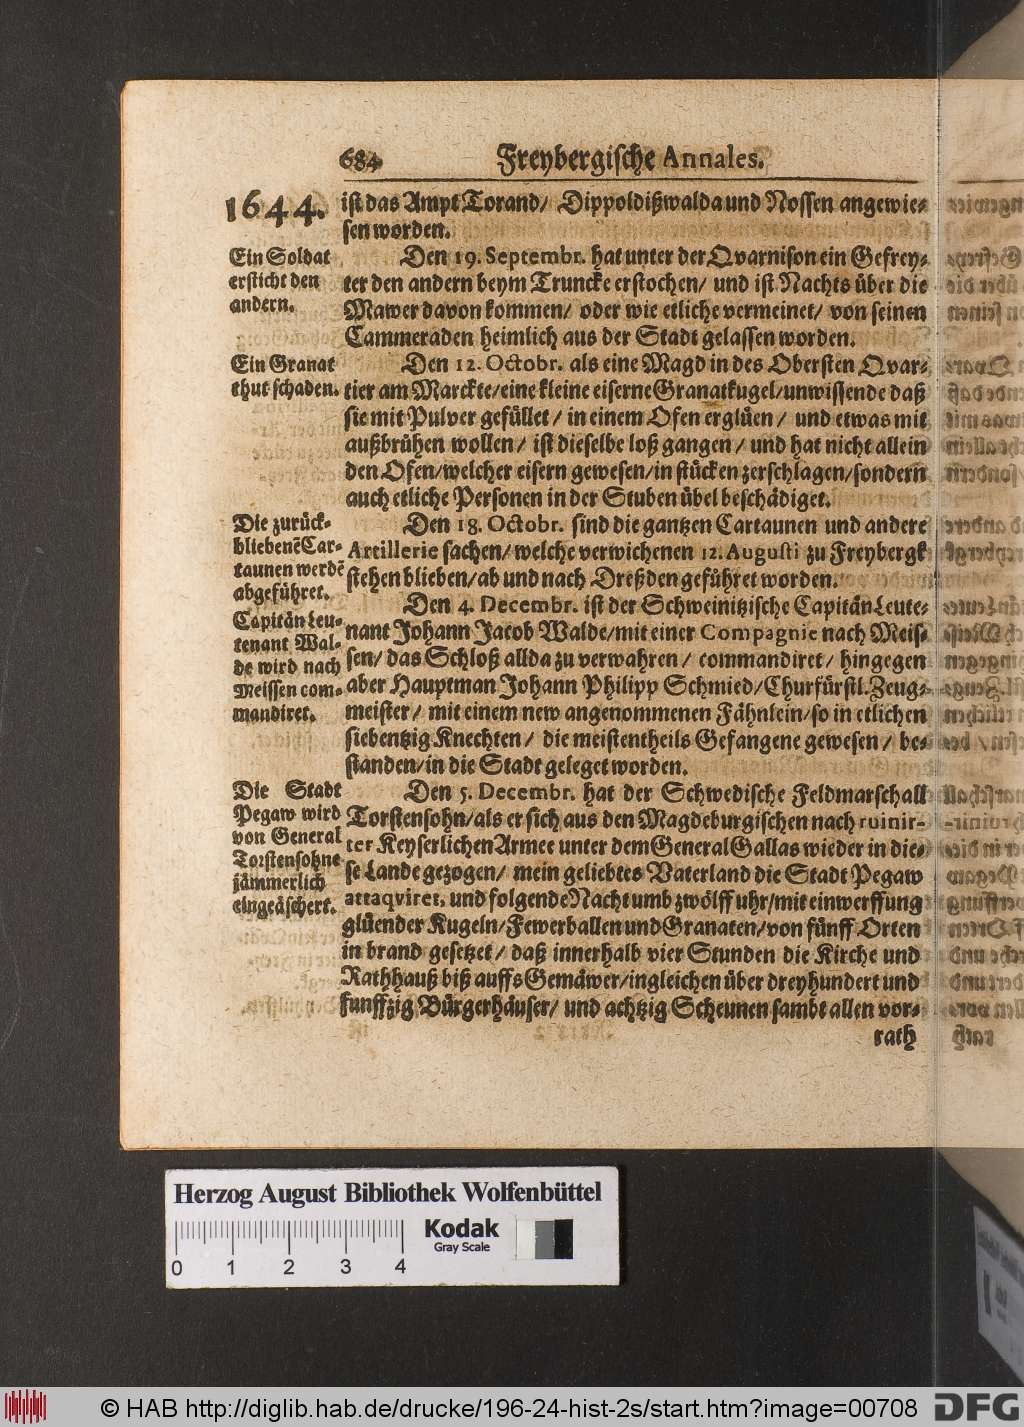 684 Freybergische Annales.
1644.
ist das Ampt Torand/ Dippoldißwalda und Nossen angewie-
sen worden.
Ein Soldat
ersticht den
andern.
Den 19. Septembr. hat unter der Qvarnison ein Gefrey-
ter den andern beym Truncke erstochen/ und ist Nachts über die
Mawer davon kommen/ oder wie etliche vermeinet/ von seinen
Cammeraden heimlich aus der Stadt gelassen worden.
Ein Granat
thut schaden.
Den 12. Octobr. als eine Magd in des Obersten Qvar-
tier am Marckte/eine kleine eiserne Granatkugel/unwissende daß
sie mit Pulver gefüllet/ in einem Ofen erglüen/ und etwas mit
außbrühen wollen/ ist dieselbe loß gangen/ und hat nicht allein
den Ofen/welcher eisern gewesen/in stücken zerschlagen/sondern
auch etliche Personen in der Stuben übel beschädiget.
Die zurück-
bliebenē Car-
taunen werdē
abgeführet.
Den 18. Octobr. sind die gantzen Cartaunen und andere
Artillerie sachen/welche verwichenen 12. Augusti zu Freybergk
stehen blieben/ab und nach Dreßden geführet worden.
Capitän Leu-
tenant Wal-
de wird nach
Meissen com-
mandiret.
Den 4. Decembr. ist der Schweinitzische Capitän Leute-
nant Johann Jacob Walde/mit einer Compagnie nach Meis-
sen/ das Schloß allda zu verwahren/ commandiret/ hingegen
aber Hauptman Johann Philipp Schmied/Churfürstl. Zeug-
meister/ mit einem new angenommenen Fähnlein/so in etlichen
siebentzig Knechten/ die meistentheils Gefangene gewesen/ be-
standen/in die Stadt geleget worden.
Die Stadt
Pegaw wird
von General
Torstensohne
jämmerlich
eingeäschert.
Den 5. Decembr. hat der Schwedische Feldmarschall
Torstensohn/als er sich aus den Magdeburgischen nach ruinir-
ter Keyserlichen Armee unter dem General Gallas wieder in die-
se Lande gezogen/ mein geliebtes Vaterland die Stadt Pegaw
attaqviret, und folgende Nacht umb zwölff uhr/mit einwerffung
glüender Kugeln/Fewerballen und Granaten/von fünff Orten
in brand gesetzet/ daß innerhalb vier Stunden die Kirche und
Rathhauß biß auffs Gemäwer/ingleichen über dreyhundert und
funffzig Bürgerhäuser/ und achtzig Scheunen sambt allen vor-
rath
Herzog August Bibliothek Wolfenbüttel
Kodak
Gray Scale
0 1 2 3 4
© HAB http://diglib.hab.de/drucke/196-24-hist-2s/start.htm?image=00708
DFG